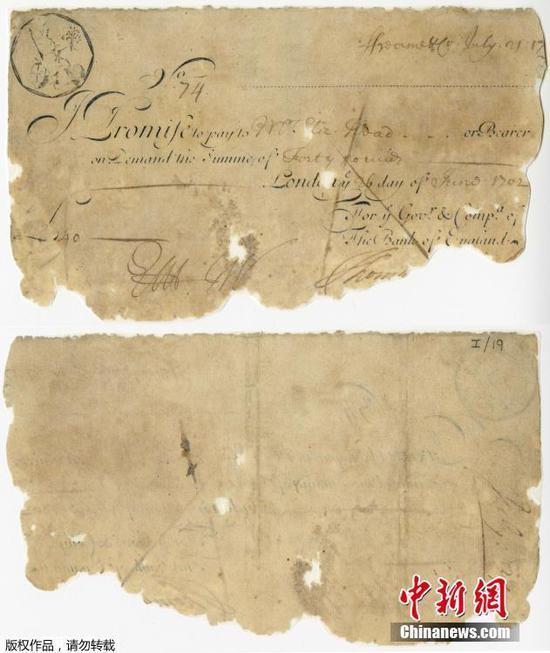 July. 21. 17
No 74
I Promise to pay to Mrs. Eliz. Head . . . or Bearer
on Demand the Summe of Forty pounds
London ye 26 day of June 1702
For ye Govr. & Compa. of
The Bank of England.
£ 40
Thomas
I/19
中新網
Chinanews.com
版权作品，请勿转载